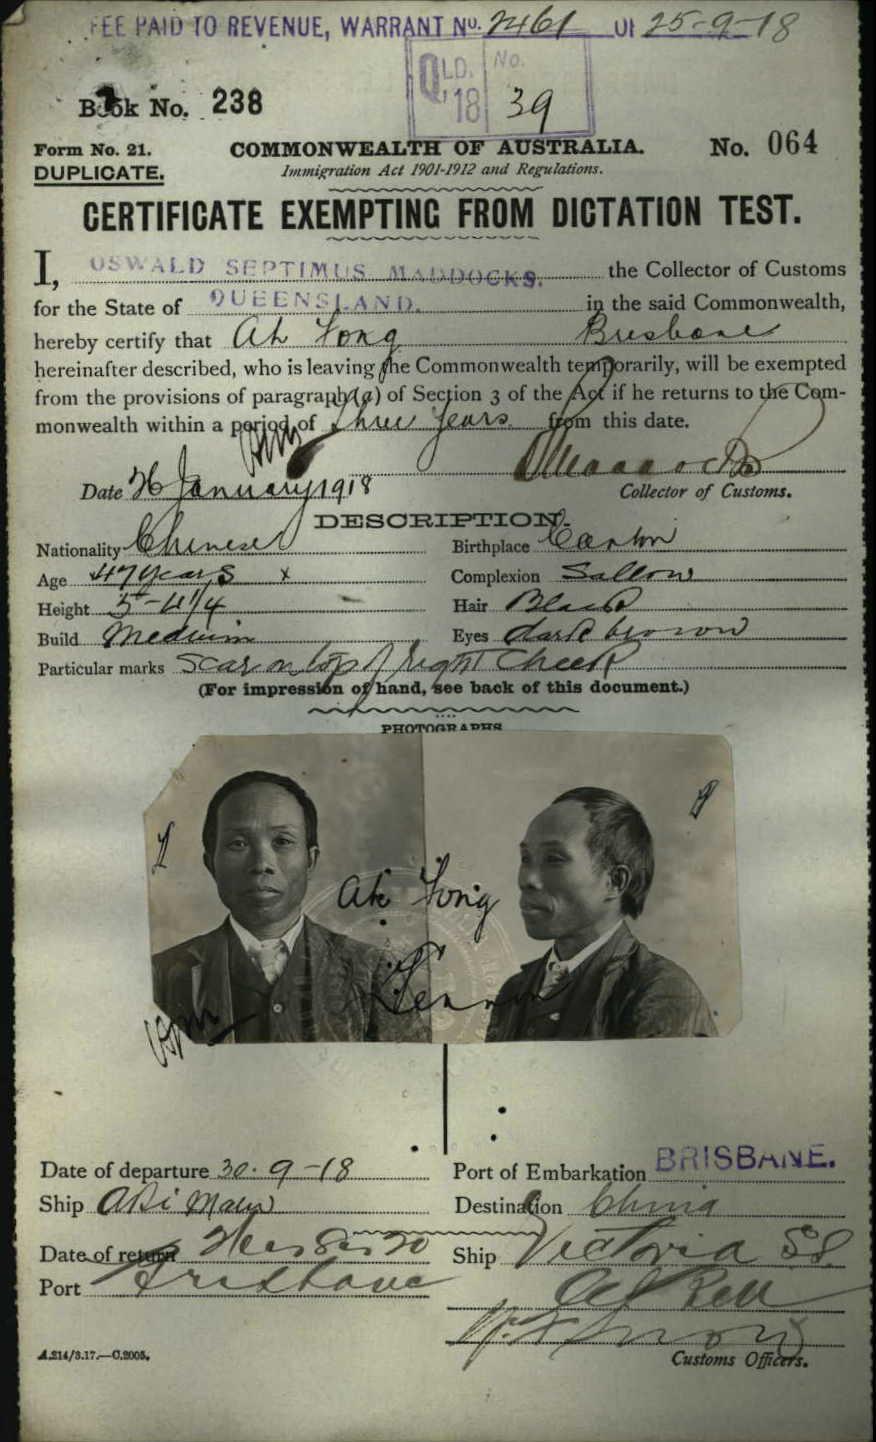 FEE PAID TO REVENUE, WARRANT No. 2461 OF 25-9-18
QLD. No.
'18 39
Book No. 238
Form No. 21. COMMONWEALTH OF AUSTRALIA. No. 064
DUPLICATE. Immigration Act 1901-1912 and Regulations.
CERTIFICATE EXEMPTING FROM DICTATION TEST.
I, OSWALD SEPTIMUS MADDOCKS. the Collector of Customs
for the State of QUEENSLAND. in the said Commonwealth,
hereby certify that Ah Fong Brisbane
hereinafter described, who is leaving the Commonwealth temporarily, will be exempted
from the provisions of paragraph (a) of Section 3 of the Act if he returns to the Com-
monwealth within a period of three years. from this date.
Date January 1918 Collector of Customs.
DESCRIPTION.
Nationality Chinese Birthplace Canton
Age 47 years x Complexion Sallow
Height 5-4 1/4 Hair Black
Build Medium Eyes dark brown
Particular marks Scar on top of right cheek
(For impression of hand, see back of this document.)
PHOTOGRAPHS
Ah Fong
Date of departure 30-9-18 Port of Embarkation BRISBANE.
Ship Destination China
Date of return Ship Victoria S.S.
Port Brisbane
Customs Officers.
A.214/3.17.—C.2005.